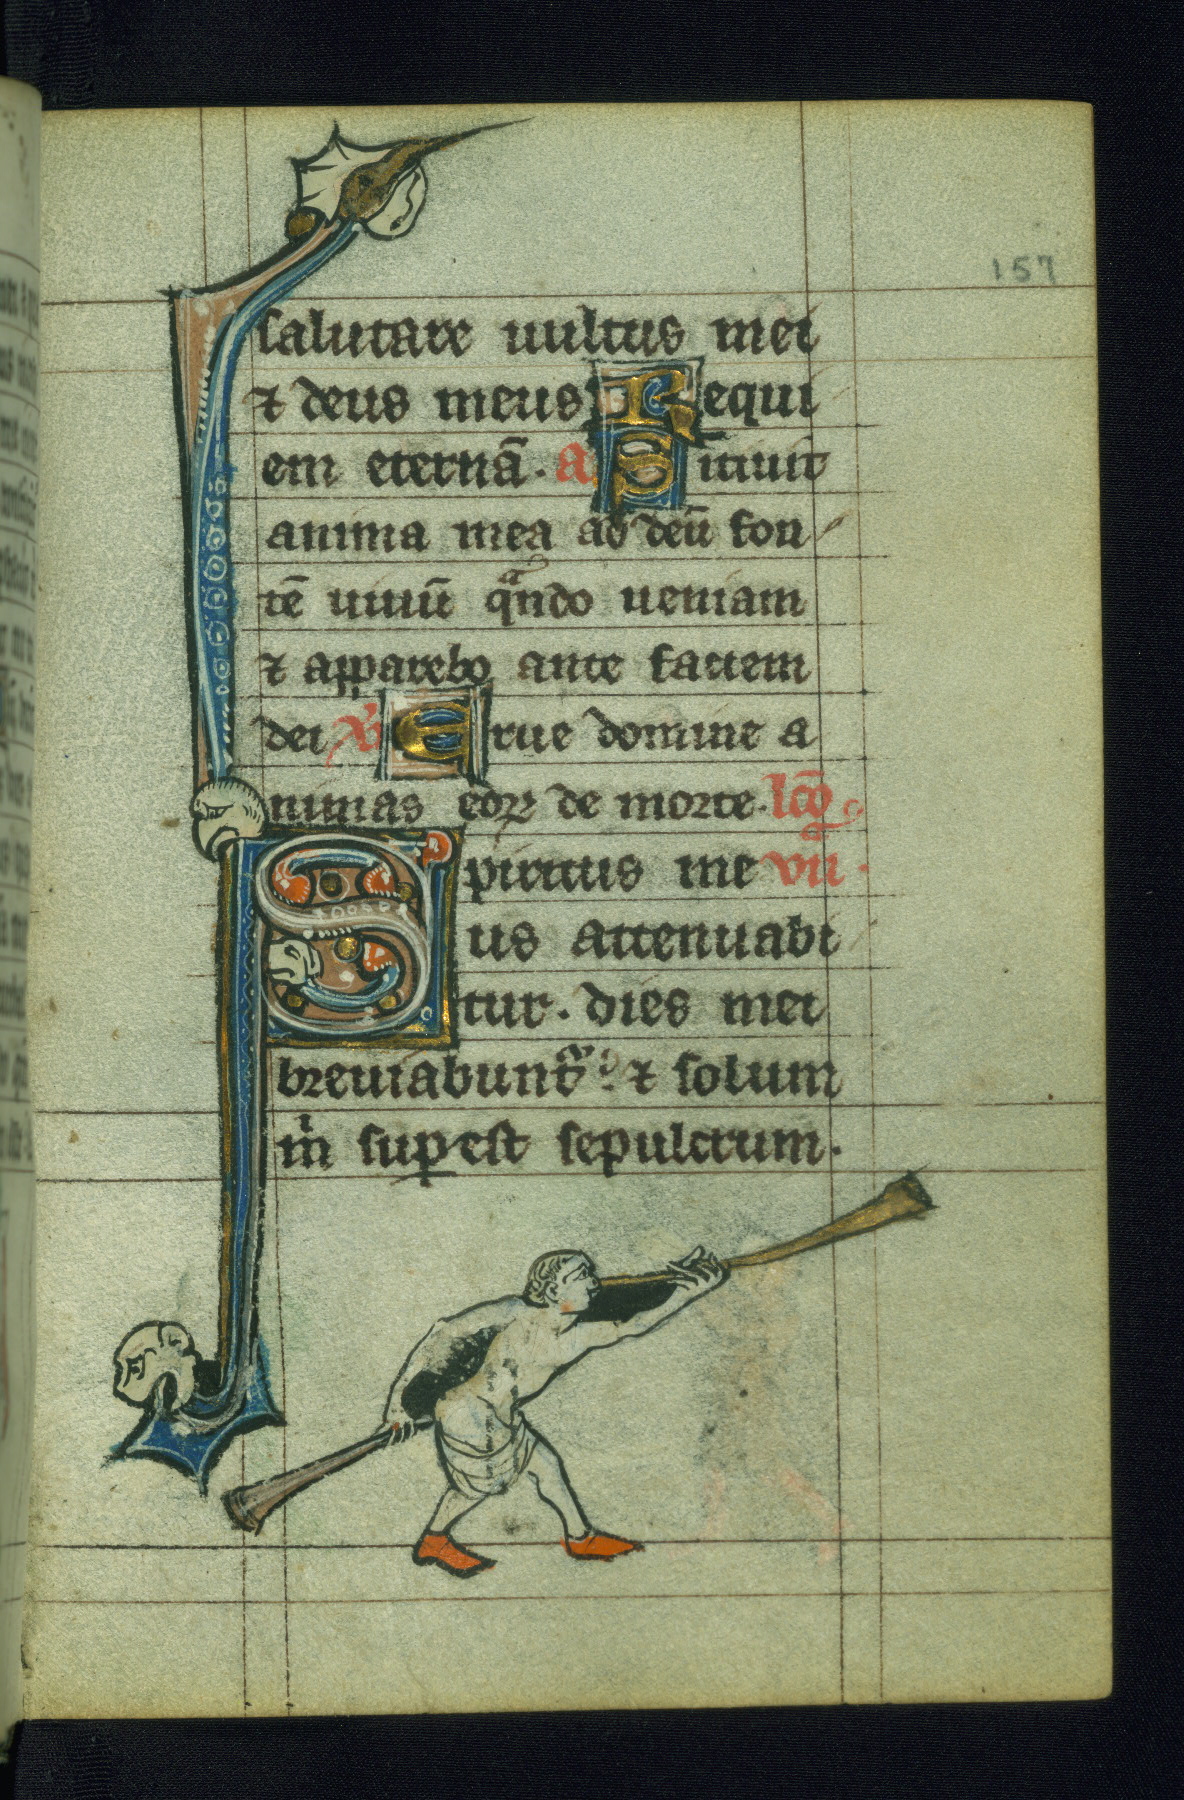 157
salutare uultus mei
⁊ deus meus Requi
em eternā. a Sitiuit
anima mea ad deū fon
tē uiuū qᵃndo ueniam
⁊ apparebo ante faciem
dei Erue domine a
nimas eoꝝ de morte. lcō
Spiritus me vii.
us attenuabi
tur. dies mei
breuiabunt᷑ ⁊ solum
m̍ suꝑest sepulcrum.